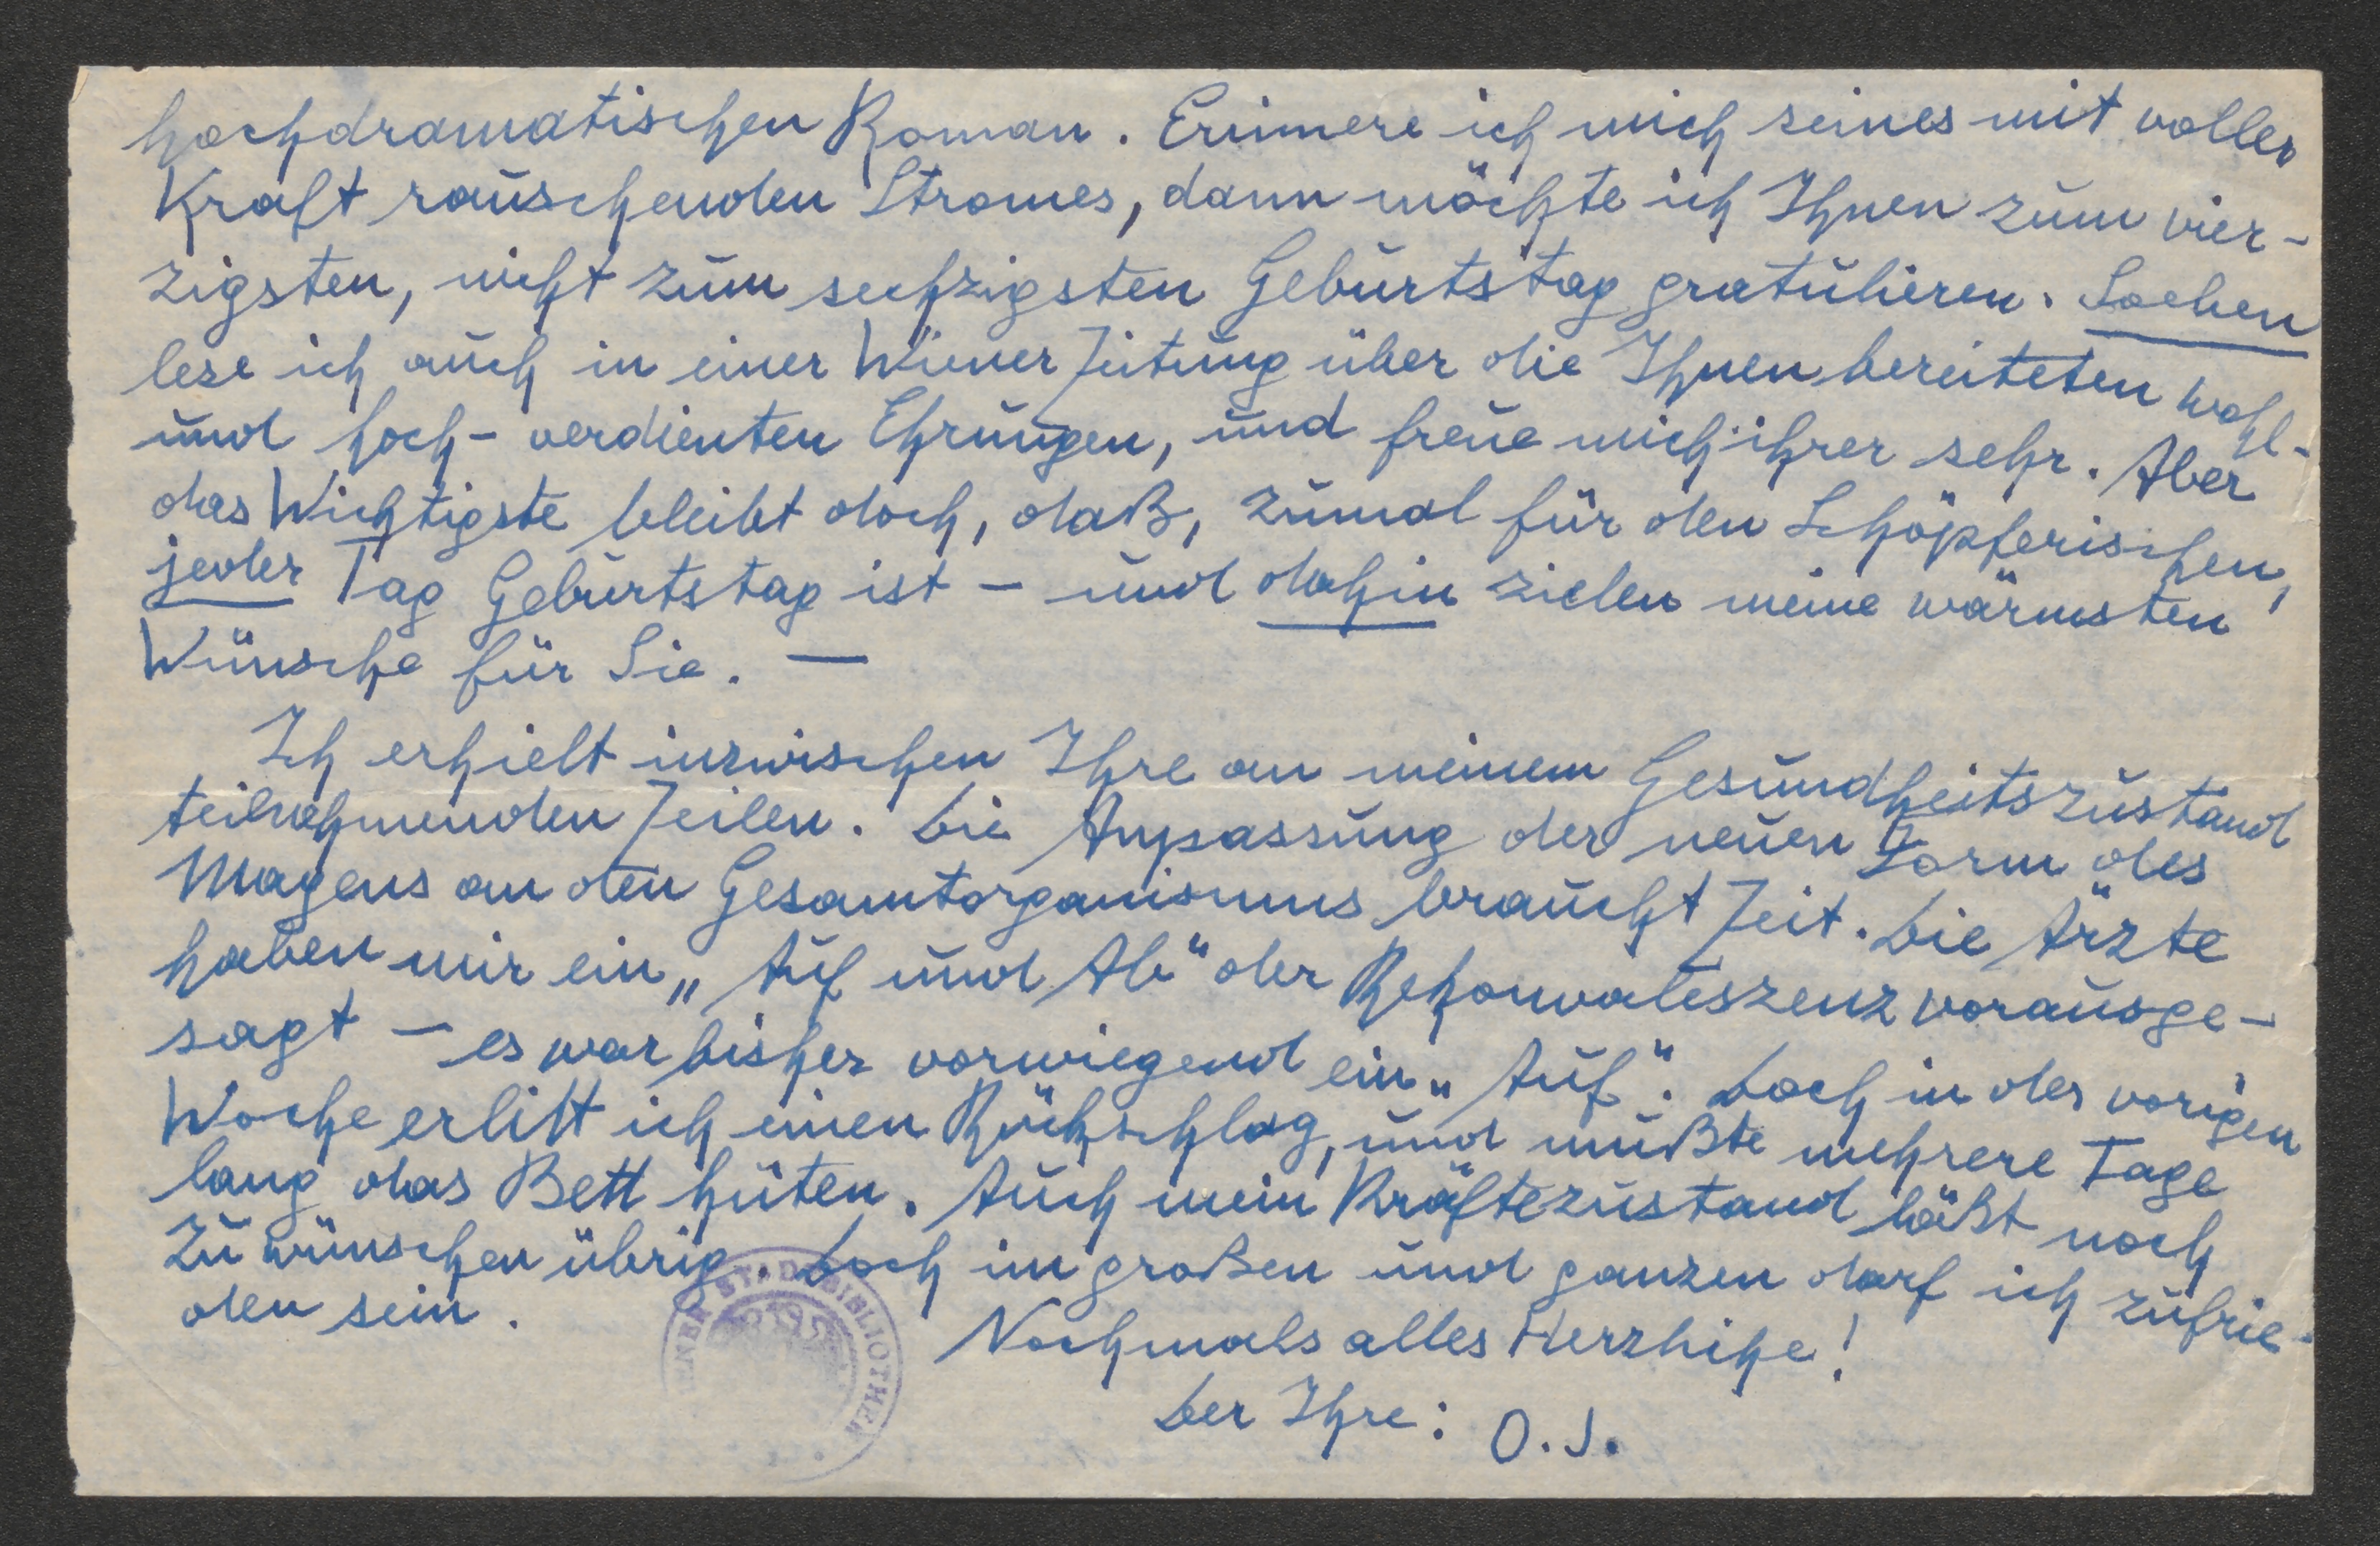 hochdramatischen Roman. Erinnere ich mich seines mit voller
Kraft rauschenden Stromes, dann möchte ich Ihnen zum vier-
zigsten, nicht zum sechzigsten Geburtstag gratulieren. Soeben
lese ich auch in einer Wiener Zeitung über die Ihnen bereiteten wohl-
und hoch-verdienten Ehrungen, und freue mich ihrer sehr. Aber
das Wichtigste bleibt doch, daß, zumal für den Schöpferischen,
jeder Tag Geburtstag ist – und dahin zielen meine wärmsten
Wünsche für Sie. —
Ich erhielt inzwischen Ihre an meinem Gesundheitszustand
teilnehmenden Zeilen. Die Anpassung der neuen Form des
Magens an den Gesamtorganismus braucht Zeit. Die Ärzte
haben mir ein „Auf und Ab" der Rekonvaleszenz vorausge-
sagt – es war bisher vorwiegend ein „Auf". Doch in der vorigen
Woche erlitt ich einen Rückschlag, und mußte mehrere Tage
lang das Bett hüten. Auch mein Kräftezustand läßt noch
zu wünschen übrig. Doch im großen und ganzen darf ich zufrie-
den sein.
Nochmals alles Herzliche!
Der Ihre: O. J.
WIENER STADTBIBLIOTHEK